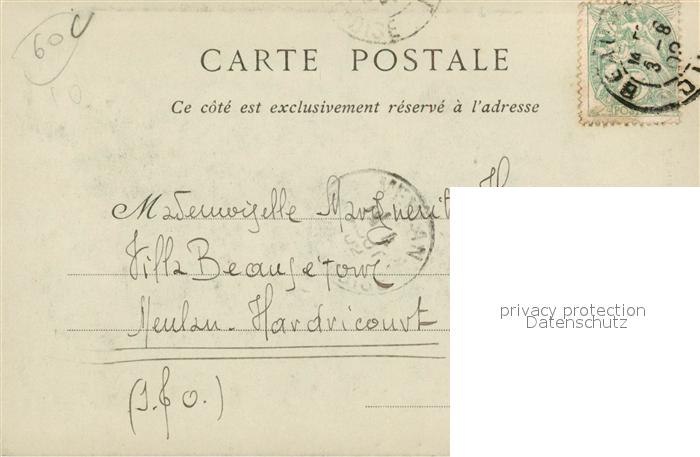 60
CARTE POSTALE
Ce côté est exclusivement réservé à l'adresse
Mademoiselle Marguerit H
Villa Beauséjour
Meulan-Hardricourt
(S. & O.)
privacy protection
Datenschutz